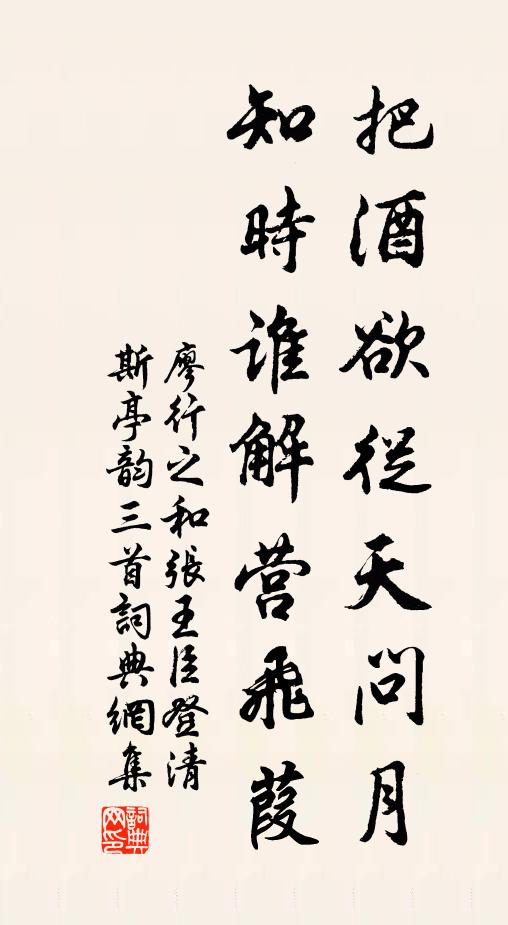 把酒欲從天問月
知時誰解营飛葭
廖行之和張王臣登清
斯亭韵三首詞典網集
詞典网印